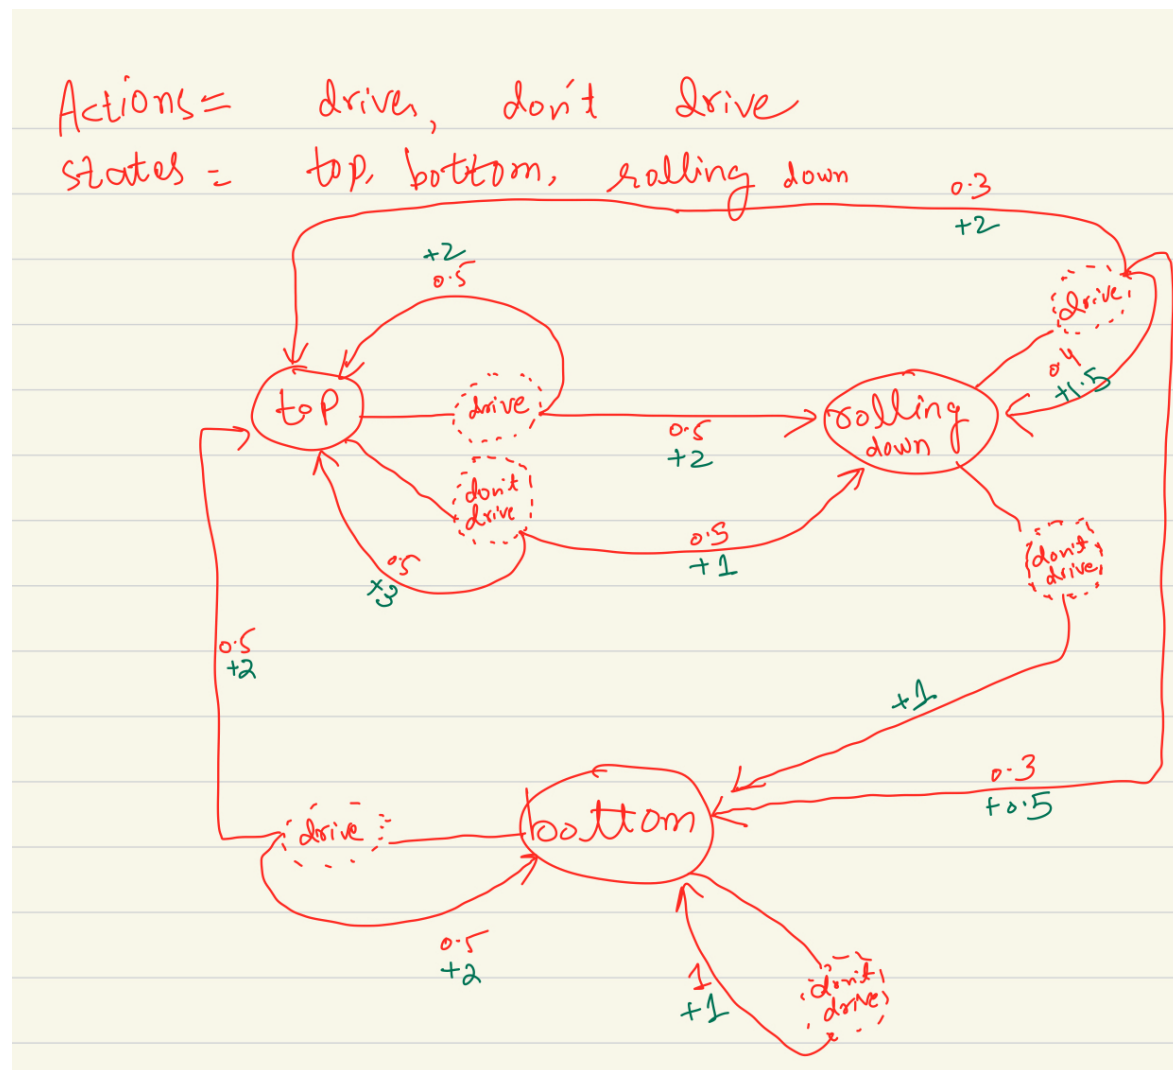 Actions= drive, don't drive
states = top, bottom, rolling down
0.3
+2
+2
0.5
drive
0.4
+1.5
top
drive
rolling
down
0.5
+2
don't
drive
0.5
+1
0.5
+3
don't
drive
0.5
+2
+1
0.3
+0.5
drive
bottom
0.5
+2
1
+1
don't
drive